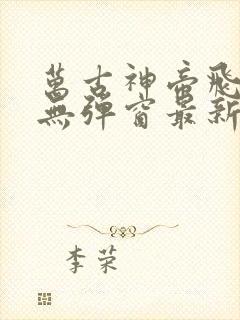 萬古神帝飛
無彈窗最新
李荣